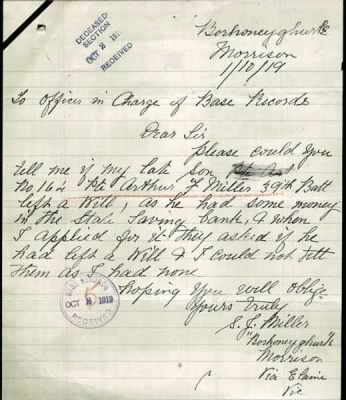 DECEASED
SECTION
OCT 2 19
RECEIVED
Borhoneyghurk
Morrison
1/10/19
To Officer in Charge of Base Records
Dear Sir
please could you
tell me if my late son
No 162 Pte Arthur J Miller 39th Batt
left a Will, as he had some money
in the State Saving bank, & when
I applied for it they asked if he
had left a Will & I could not tell
them as I had none
hoping you will oblige
Yours truly
S. J. Miller
"Borhoneyghurk"
Morrison
Via Elaine
Vic
BASE RECORDS
OCT 1919
RECEIVED